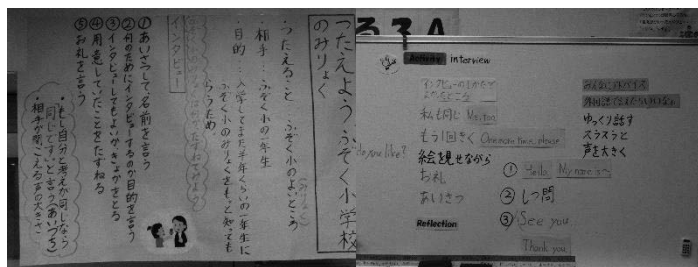 つたえよう ふぞく小学校
のみりょく
・つたえること ふぞく小のよいところ
(みりょく)
・相手…ふぞく小の一年生
目的…入学してまだ半年くらいの一年生に
ふぞく小のみりょくをもっと知っても
らうため。
インタビュー
①あいさつして、名前を言う
②何のためにインタビューするのか目的を言う
③インタビューしてもよいか、きょかをとる
④用意していたことをたずねる
⑤お礼を言う
・もし自分と考えが同じなら
同じですと言う(あいづち)
・相手が聞こえる声の大きさ
Activity interview
インタビューのしかたで
私も同じ Me, too.
もう1回きく One more time, please
do you like?
絵を見せながら
お礼
あいさつ
Reflection
ゆっくり話す
スラスラと
声を大きく
① Hello. My name is～
② しつ問
③ See you.
Thank you.